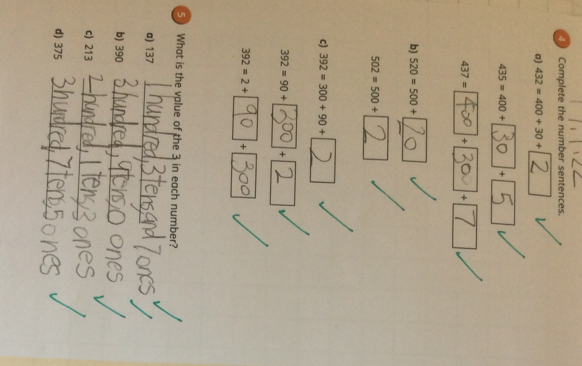 4 Complete the number sentences.
a) 432 = 400 + 30 + 2
435 = 400 + 30 + 5
437 = 400 + 30 + 7
b) 520 = 500 + 20
502 = 500 + 2
c) 392 = 300 + 90 + 2
392 = 90 + 300 + 2
392 = 2 + 90 + 300
5 What is the value of the 3 in each number?
a) 137 1 hundred, 3 tens and 7 ones
b) 390 3 hundred, 9 tens, 0 ones
c) 213 2 hundred, 1 tens, 3 ones
d) 375 3 hundred, 7 tens, 5 ones